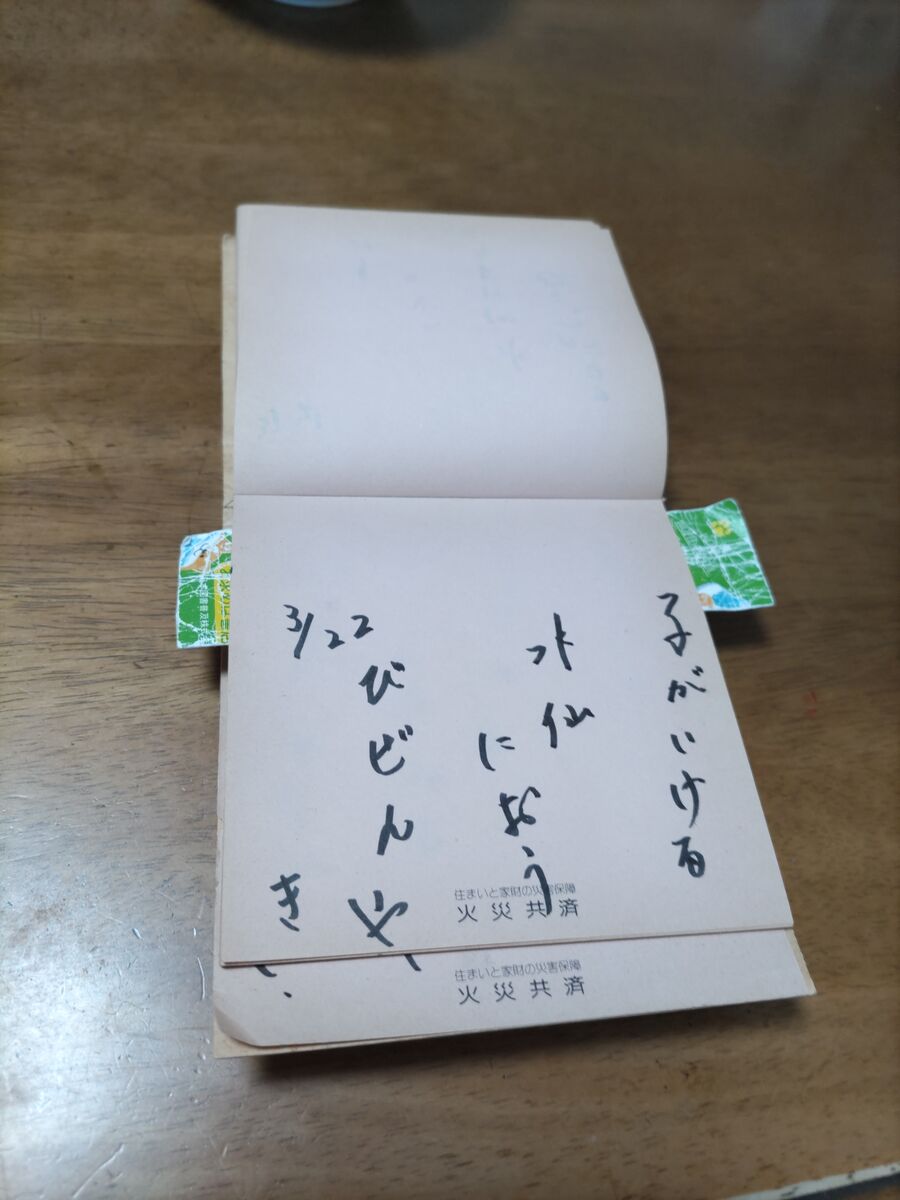 子がいける
水仙
におう
びビんや
3/22
き
住まいと家財の災害保障
火災共済
住まいと家財の災害保障
火災共済